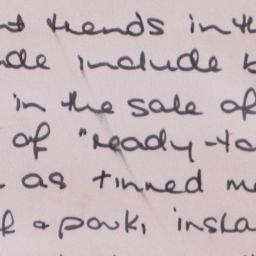 nt trends in th
de include b
in the sale of
of "ready-to
as tinned me
f a pork, insta